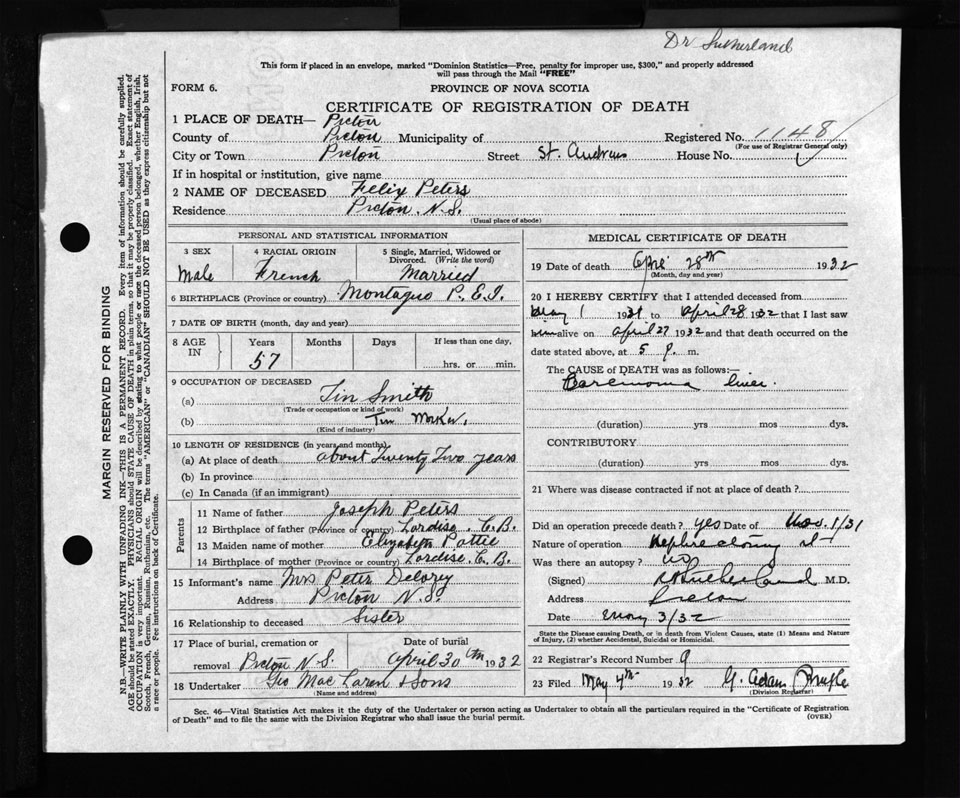 Dr Sutherland
This form if placed in an envelope, marked "Dominion Statistics—Free, penalty for improper use, $300," and properly addressed
will pass through the Mail "FREE"
FORM 6.
PROVINCE OF NOVA SCOTIA
CERTIFICATE OF REGISTRATION OF DEATH
1 PLACE OF DEATH— Pictou
County of Pictou Municipality of Registered No. 1148
(For use of Registrar General only)
City or Town Pictou Street St. Andrews House No.
If in hospital or institution, give name
2 NAME OF DECEASED Felix Peters
Residence Pictou. N.S.
(Usual place of abode)
PERSONAL AND STATISTICAL INFORMATION
3 SEX 4 RACIAL ORIGIN 5 Single, Married, Widowed or
Divorced. (Write the word)
Male French Married
6 BIRTHPLACE (Province or country) Montague P.E.I.
7 DATE OF BIRTH (month, day and year)
8 AGE IN Years Months Days If less than one day,
57 hrs. or min.
9 OCCUPATION OF DECEASED
(a) Tin Smith
(Trade or occupation or kind of work)
(b) Tin Worker.
(Kind of industry)
10 LENGTH OF RESIDENCE (in years and months)
(a) At place of death about Twenty Two years
(b) In province
(c) In Canada (if an immigrant)
Parents
11 Name of father Joseph Peters
12 Birthplace of father (Province or country) Lardise. C.B.
13 Maiden name of mother Elizabeth Pottie
14 Birthplace of mother (Province or country) Lardise. C.B.
15 Informant's name Mrs Peter Delorey
Address Pictou N.S.
16 Relationship to deceased Sister
17 Place of burial, cremation or Date of burial
removal Pictou N.S. April 30th 1932
18 Undertaker Geo MacLaren & Sons
(Name and address)
MEDICAL CERTIFICATE OF DEATH
19 Date of death Apri 28th 1932
(Month, day and year)
20 I HEREBY CERTIFY that I attended deceased from
May 1 1931 to April 28 1932 that I last saw
him alive on April 27 1932 and that death occurred on
date stated above, at 5 P. m.
The CAUSE of DEATH was as follows:—
Carcinoma liver.
(duration) yrs mos dys.
CONTRIBUTORY
(duration) yrs mos dys.
21 Where was disease contracted if not at place of death?
Did an operation precede death? yes Date of Nov. 1/31
Nature of operation
Was there an autopsy? no
(Signed) Sutherland M.D.
Address Pictou
Date May 3/32
State the Disease causing Death, or in death from Violent Causes, state (1) Means and Nature
of Injury, (2) whether Accidental, Suicidal or Homicidal.
22 Registrar's Record Number 9
23 Filed May 4th 1932 G. Adam
(Division Registrar)
Sec. 46—Vital Statistics Act makes it the duty of the Undertaker or person acting as Undertaker to obtain all the particulars required in the "Certificate of Registration
of Death" and to file the same with the Division Registrar who shall issue the burial permit.
(OVER)
MARGIN RESERVED FOR BINDING
N.B.—WRITE PLAINLY WITH UNFADING INK—THIS IS A PERMANENT RECORD. Every item of information should be carefully supplied.
AGE should be stated EXACTLY. PHYSICIANS should STATE CAUSE OF DEATH in plain terms, so that it may be properly classified. Exact statement of
OCCUPATION is very important. RACIAL ORIGIN will be described by stating to what people or race the deceased person belonged, whether English, Irish,
Scotch, French, German, Russian, Ruthenian, etc. The terms "AMERICAN" or "CANADIAN" SHOULD NOT BE USED as they express citizenship but not
a race or people. See instructions on back of Certificate.